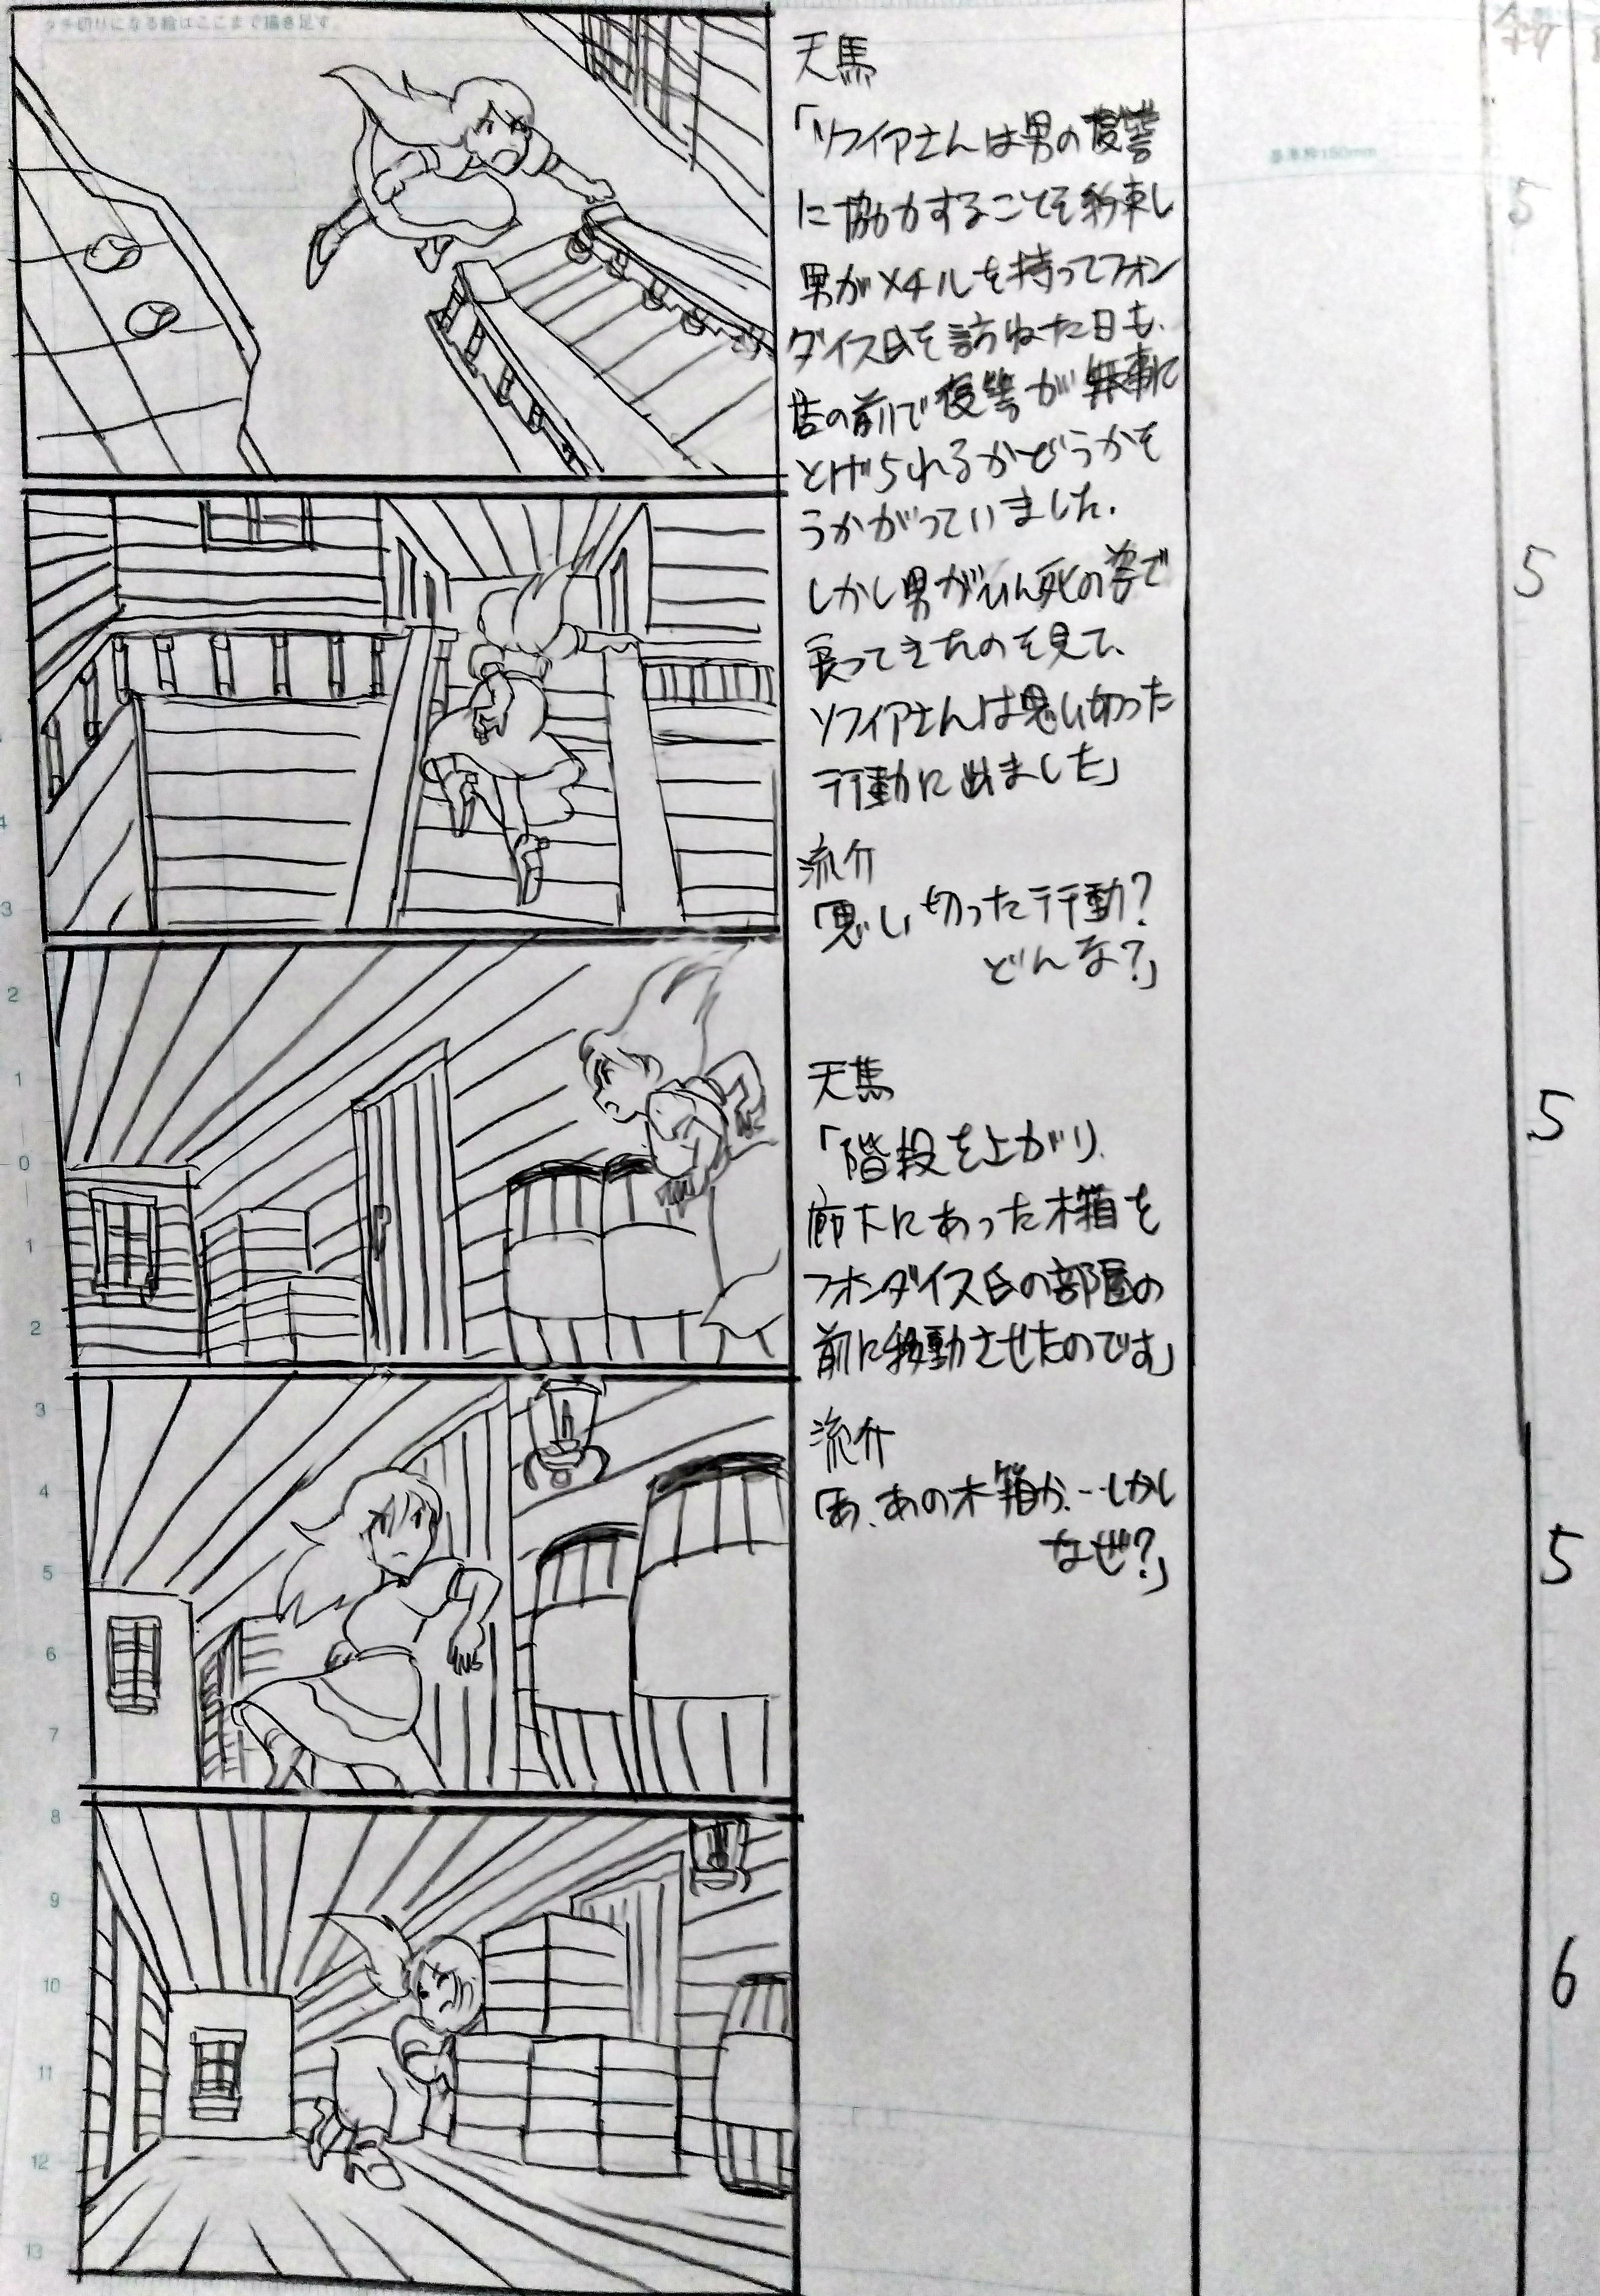 タチ切りになる絵はここまで描き足す。
基準枠150mm
天馬
「ソフィアさんは男の復讐
に協力することを約束し
男がメチルを持ってフォン
ダイス氏を訪ねた日も、
店の前で復讐が無事に
とげられるかどうかを
うかがっていました。
しかし男がひん死の姿で
戻ってきたのを見て、
ソフィアさんは思い切った
行動に出ました」
流介
「思い切った行動?
どんな?」
天馬
「階段を上がり、
廊下にあった木箱を
フォンダイス氏の部屋の
前に移動させたのです」
流介
「あ、あの木箱か…しかし
なぜ?」
5
5
5
5
6
4
3
2
1
0
1
2
3
4
5
6
7
8
9
10
11
12
13